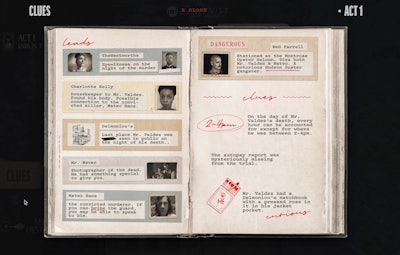 CLUES
ACT 1
leads
TheWentworths
Eyewitness on the
night of the murder
Charlotte Kelly
Housekeeper to Mr. Valdez
Found his body. Possible
connection to the convi-
cted killer, Mateo Sans.
Delmonico's
last place Mr. Valdez was
seen in public on
the night of his death.
Mr. Meyer
Photographer of the dead.
He had something special
to give you.
Mateo Sans
the convicted murderer. If
you can bribe the guard,
you may be able to speak
to him.
DANGEROUS
Ned Farrell
Stationed at the Montrose
Oyster Saloon. Ties both
Mr. Valdez & Mateo. A
notorious Hudson Duster
gangster.
clues
2-4pm
On the day of Mr.
Valdez's death, every
hour can be accounted
for except for where
he was between 2-4pm.
The autopsy report was
mysteriously missing
from the trial.
Mr. Valdez had a
Delmonico's matchbook
with a pressed rose in
it in his jacket
pocket.
curious
ACT 1
CLUES